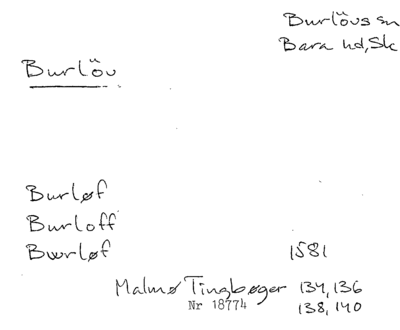 Burlövs sn
Bara hd, Sk
Burlöv
Burløf
Burloff
Bwrløf 1581
Malmø Tingbøger 134, 136
Nr 18774 138, 140